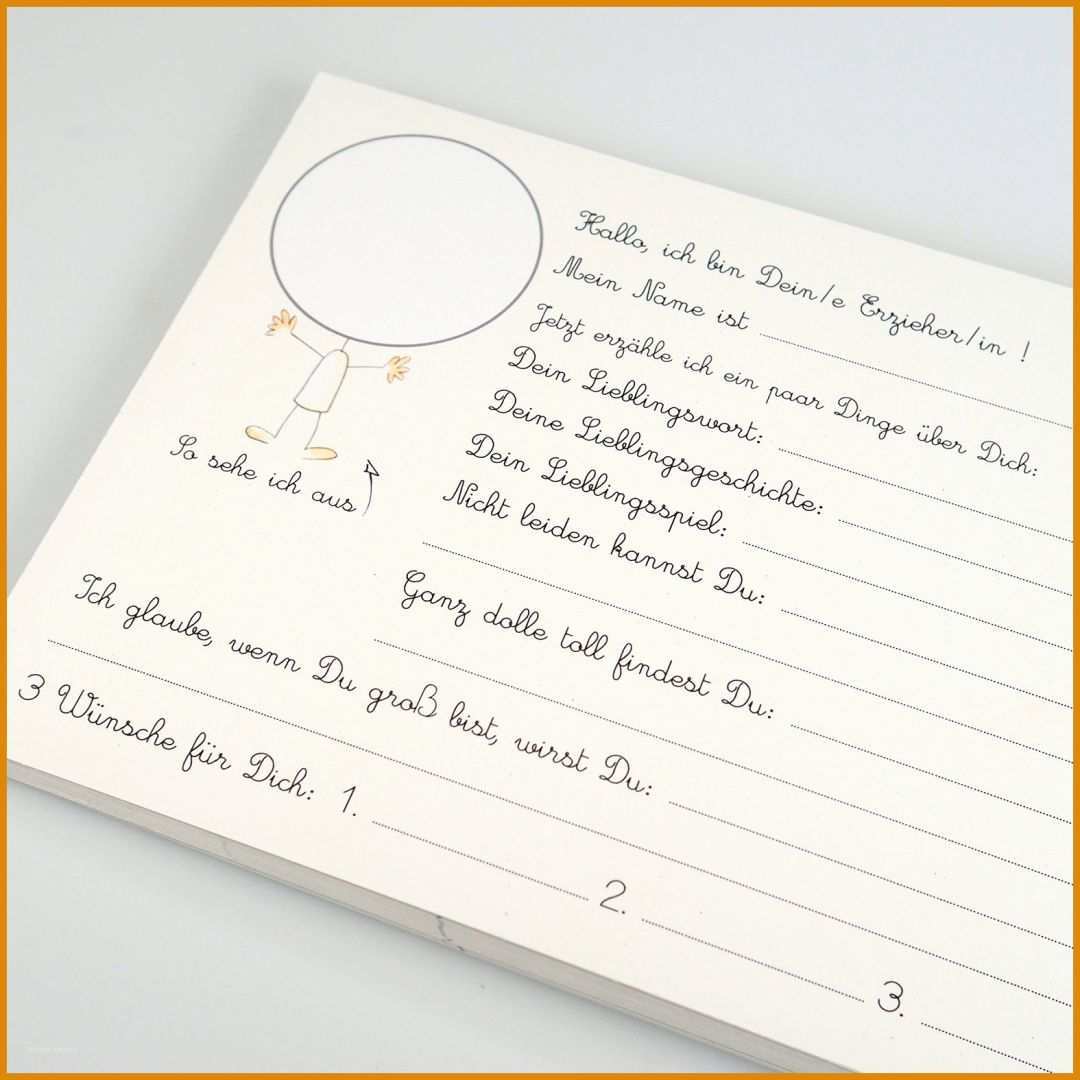 Hallo, ich bin Dein/e Erzieher/in !
Mein Name ist
Jetzt erzähle ich ein paar Dinge über Dich:
Dein Lieblingswort:
Deine Lieblingsgeschichte:
Dein Lieblingsspiel:
Nicht leiden kannst Du:
So sehe ich aus
Ganz dolle toll findest Du:
Ich glaube, wenn Du groß bist, wirst Du:
3 Wünsche für Dich: 1.
2.
3.